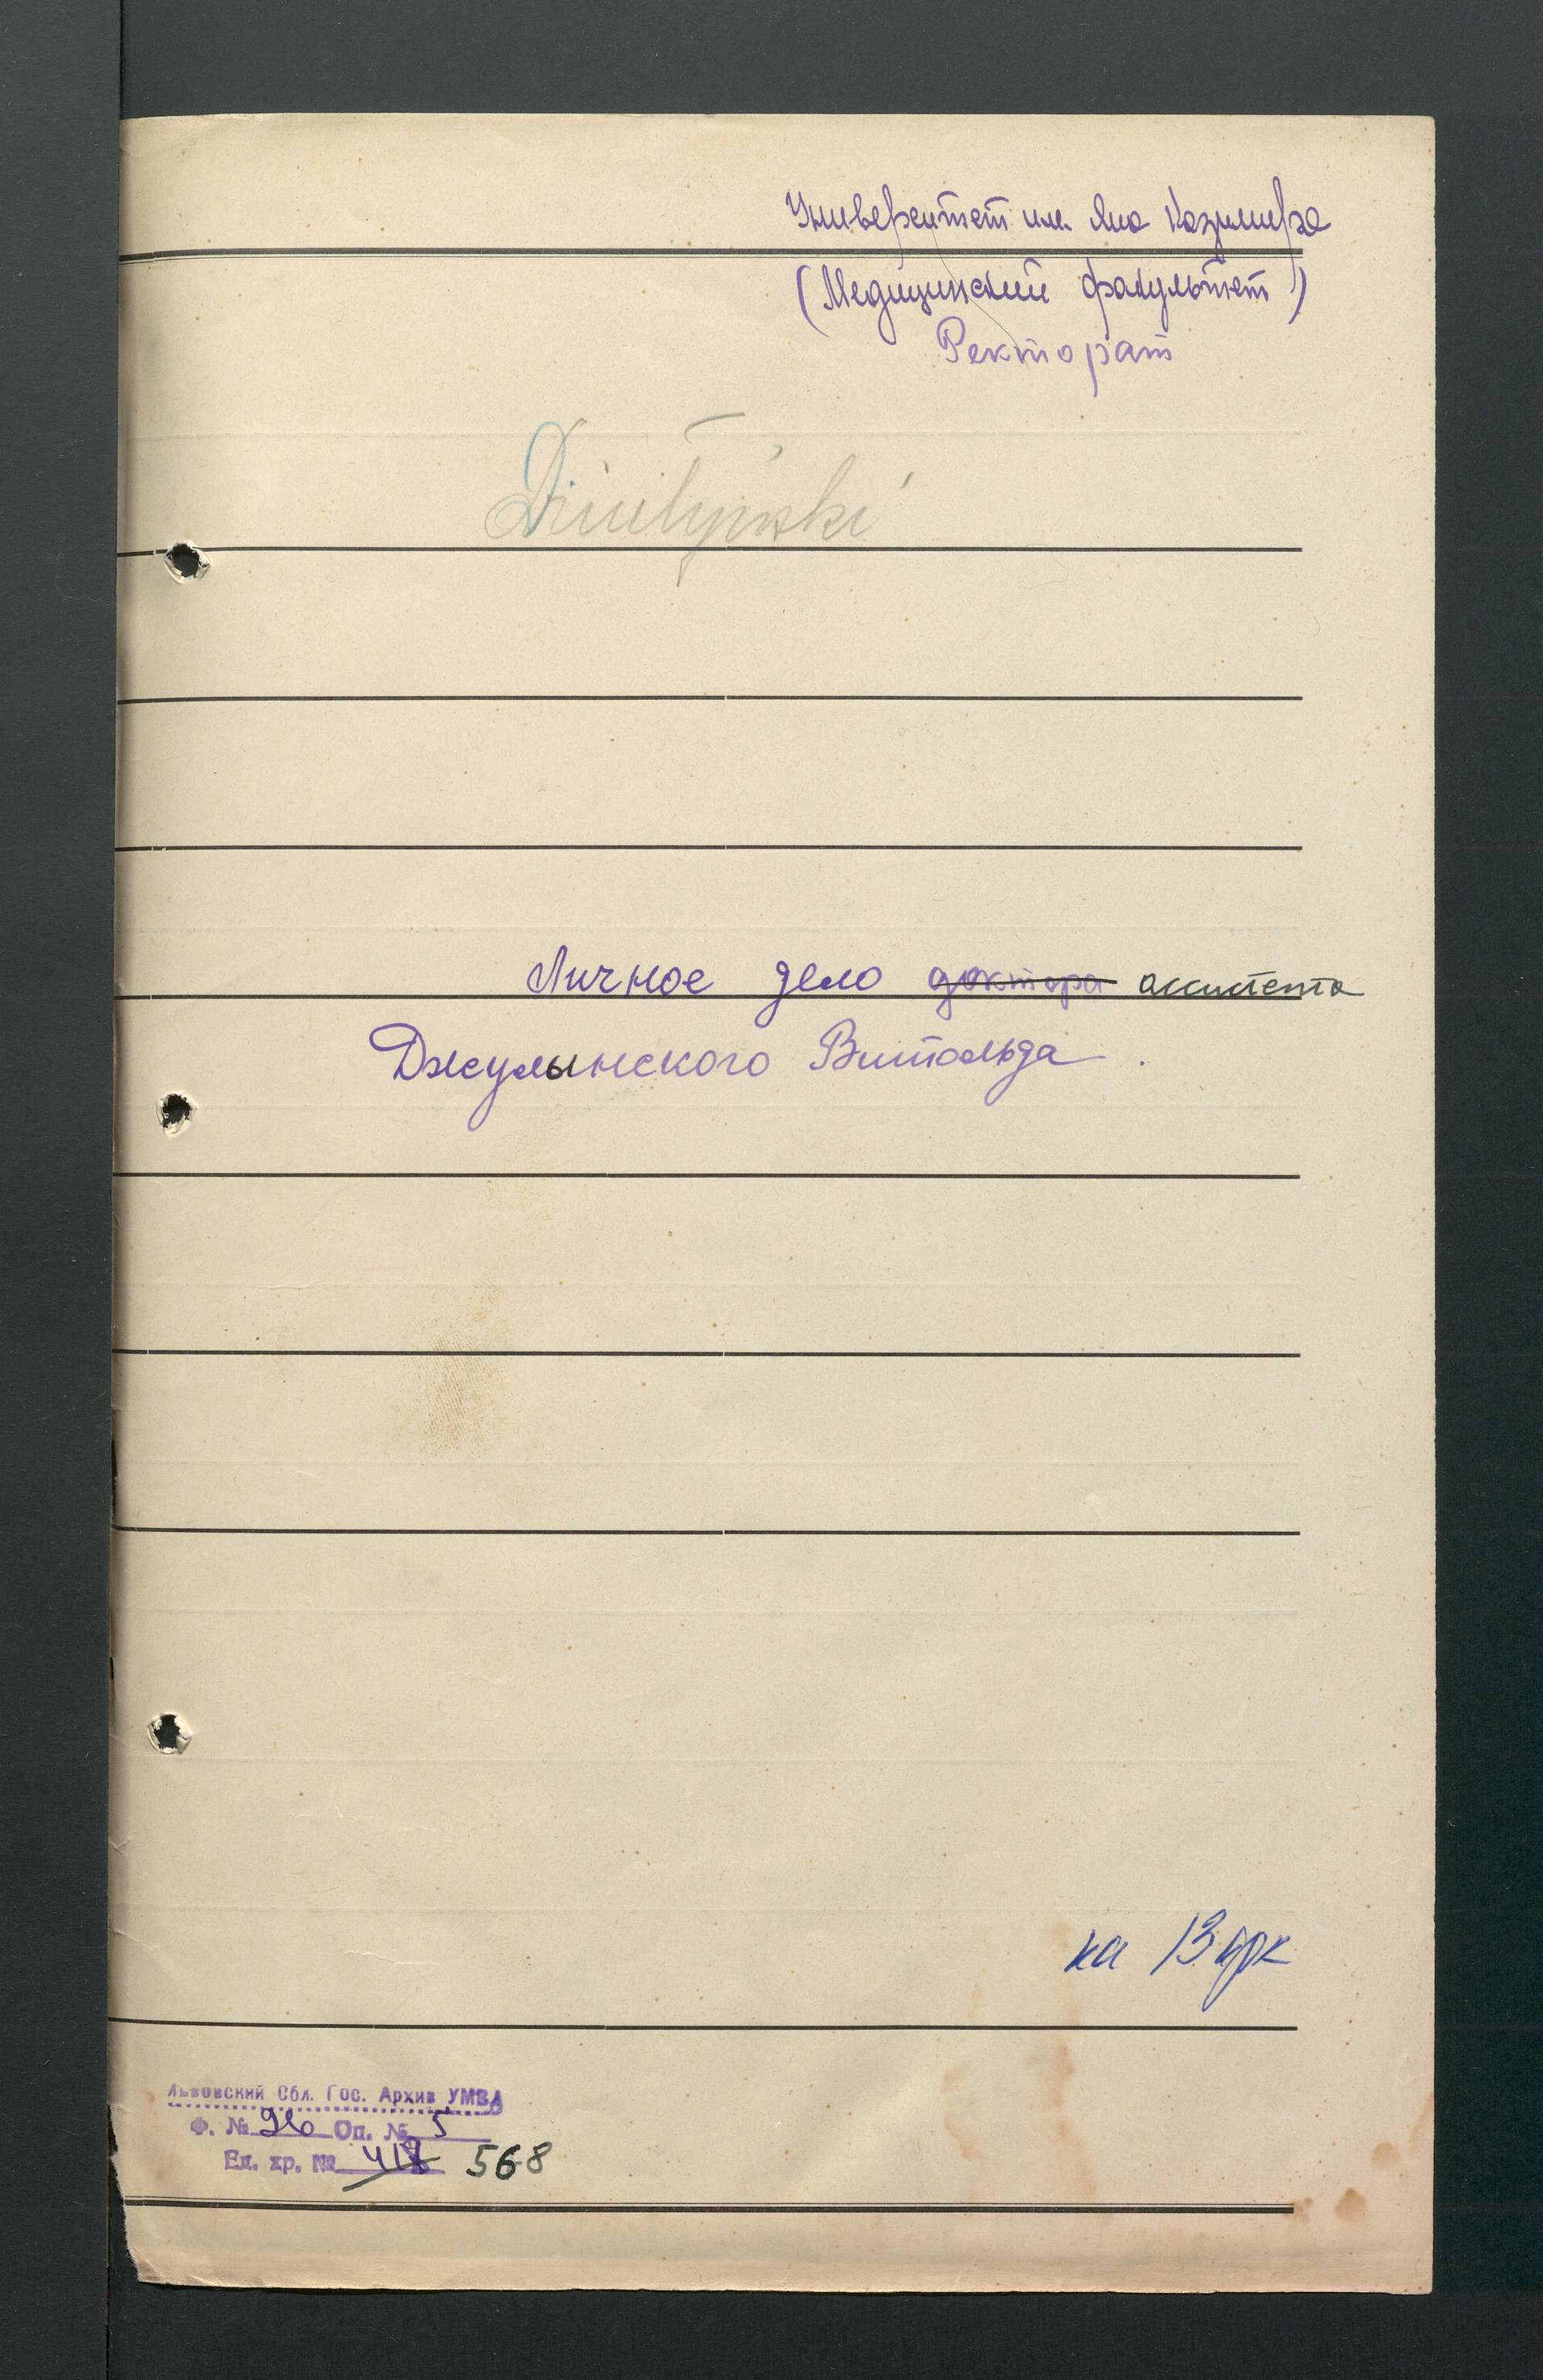 Университет им. Яна Казимира
(Медицинский факультет)
Ректорат
Личное дело доктора ассистента
Джулынского Витольда.
на 13 арк
Львовский Обл. Гос. Архив УМВД
Ф. № 26 Оп. № 5
Ед. хр. № 418 568